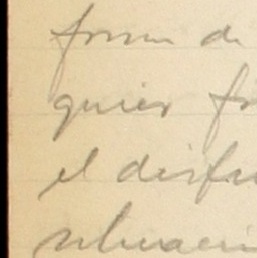 forma de
quier fr
el disfru
situación